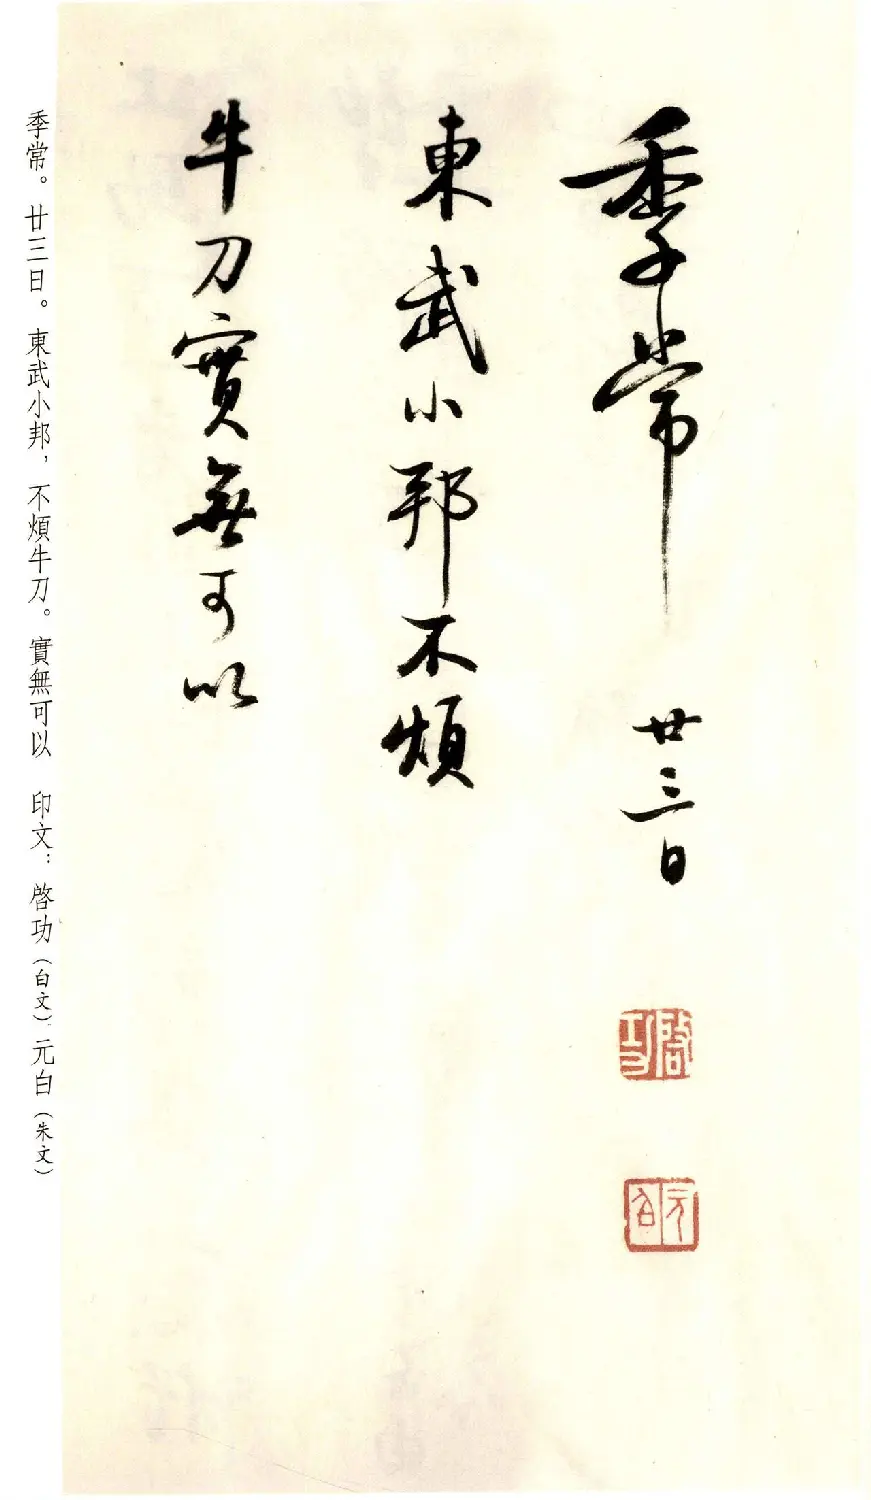 季常 廿三日
啓功
元白
東武小邦不煩
牛刀實無可以
季常。廿三日。東武小邦，不煩牛刀。實無可以 印文：啓功（白文）、元白（朱文）